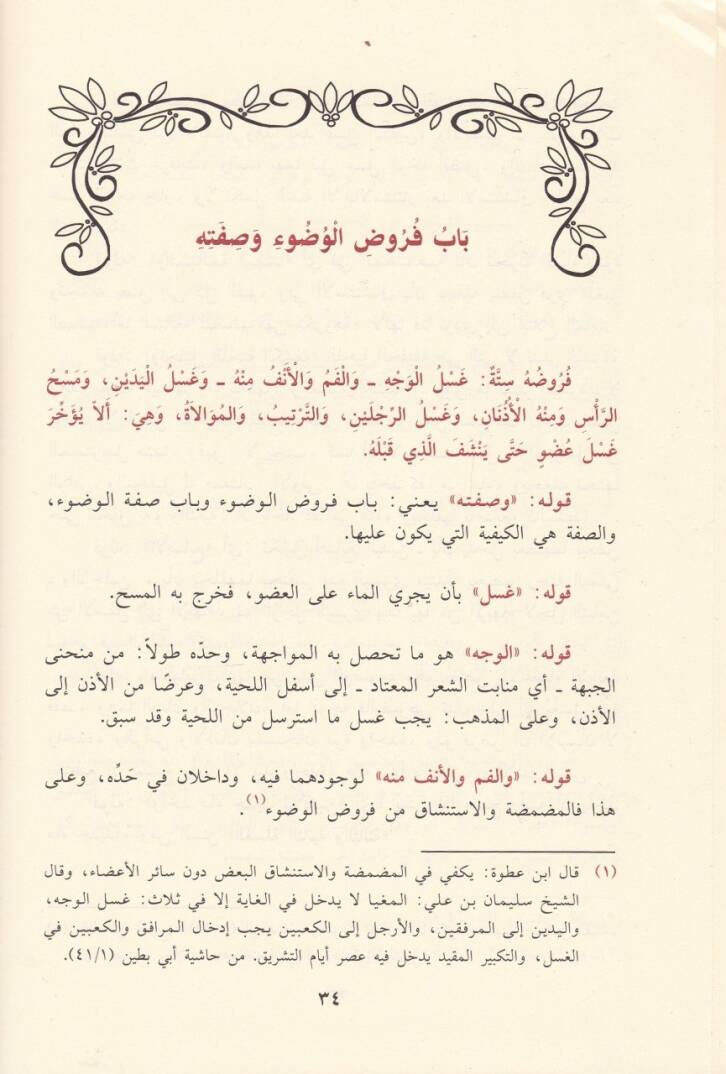 بَابُ فُرُوضِ الْوُضُوءِ وَصِفَتِهِ
فُرُوضُهُ سِتَّةٌ: غَسْلُ الْوَجْهِ ـ وَالْفَمُ وَالْأَنْفُ مِنْهُ ـ وَغَسْلُ الْيَدَيْنِ، وَمَسْحُ
الرَّأْسِ وَمِنْهُ الْأُذُنَانِ، وَغَسْلُ الرِّجْلَيْنِ، وَالتَّرْتِيبُ، وَالمُوَالاَةُ، وَهِيَ: أَلاَّ يُؤَخِّرَ
غَسْلَ عُضْوٍ حَتَّى يَنْشَفَ الَّذِي قَبْلَهُ.
قوله: «وصفته» يعني: باب فروض الوضوء وباب صفة الوضوء،
والصفة هي الكيفية التي يكون عليها.
قوله: «غسل» بأن يجري الماء على العضو، فخرج به المسح.
قوله: «الوجه» هو ما تحصل به المواجهة، وحدّه طولاً: من منحنى
الجبهة ـ أي منابت الشعر المعتاد ـ إلى أسفل اللحية، وعرضًا من الأذن إلى
الأذن، وعلى المذهب: يجب غسل ما استرسل من اللحية وقد سبق.
قوله: «والفم والأنف منه» لوجودهما فيه، وداخلان في حَدِّه، وعلى
هذا فالمضمضة والاستنشاق من فروض الوضوء(١).
(١) قال ابن عطوة: يكفي في المضمضة والاستنشاق البعض دون سائر الأعضاء، وقال
الشيخ سليمان بن علي: المغيا لا يدخل في الغاية إلا في ثلاث: غسل الوجه،
واليدين إلى المرفقين، والأرجل إلى الكعبين يجب إدخال المرافق والكعبين في
الغسل، والتكبير المقيد يدخل فيه عصر أيام التشريق. من حاشية أبي بطين (٤١/١).
٣٤